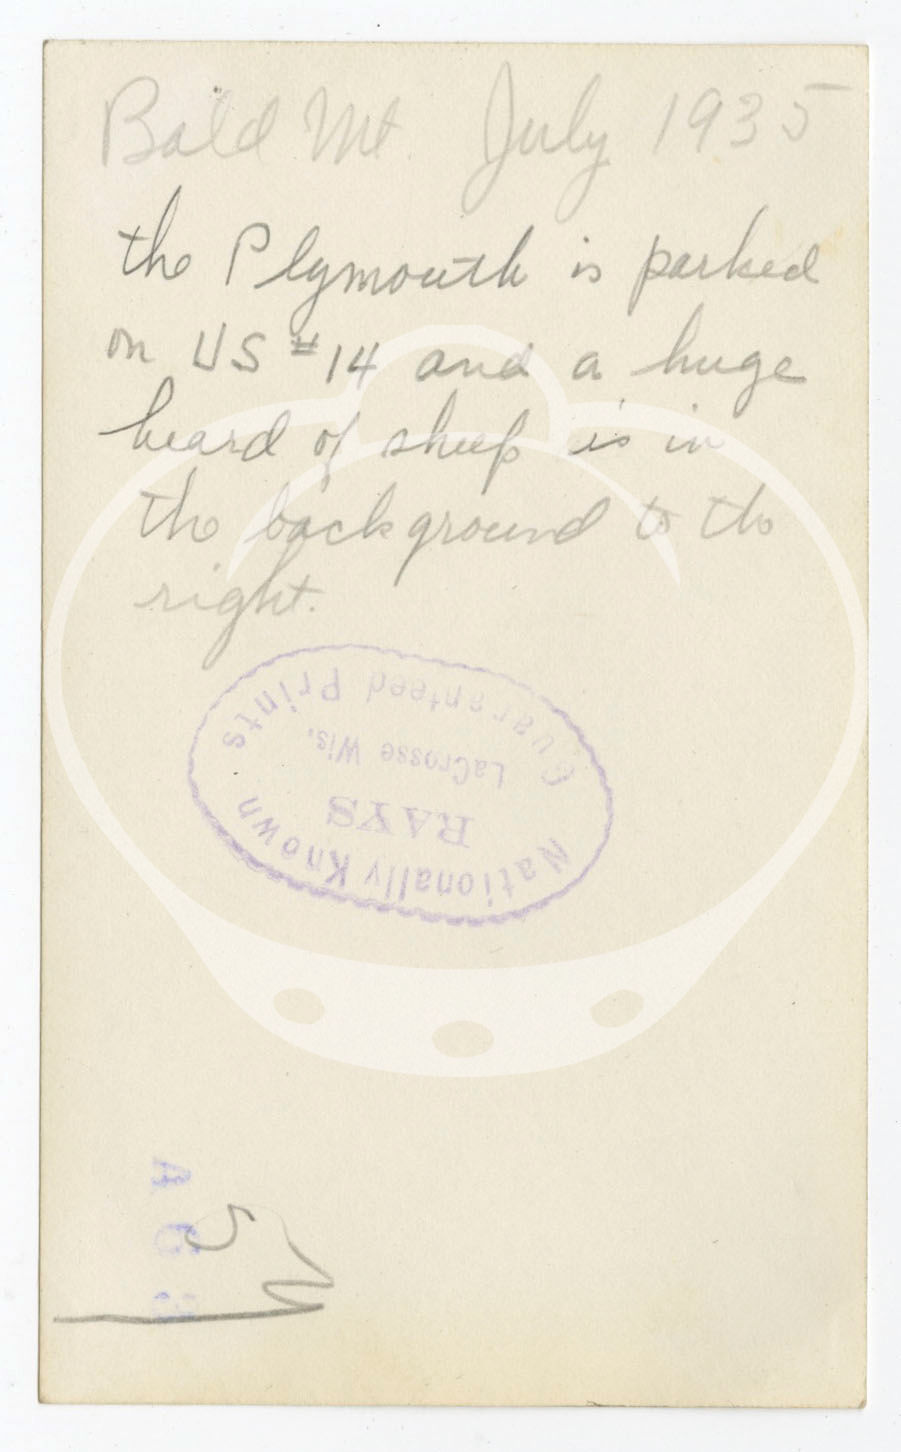 Bald Mt. July 1935
the Plymouth is parked
on US #14 and a huge
heard of sheep is in
the background to the
right.
Guaranteed Prints
LaCrosse Wis.
RAYS
Nationally Known
A
6